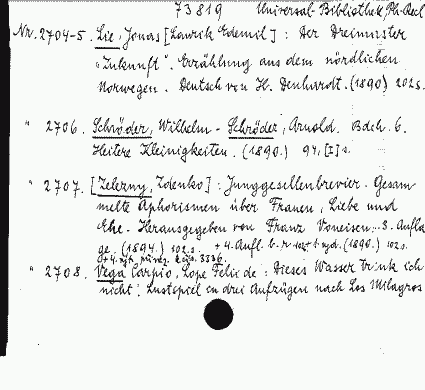 73819 Universal-Bibliothek, Ph. Recl
Nr. 2704-5. Lie, Jonas [Laurits Edemil]: Der Dreimaster
"Zukunft". Erzählung aus dem nördlichen
Norwegen. Deutsch von H. Denhardt. (1890) 202 s.
" 2706. Schröder, Wilhelm - Schröder, Arnold. Bdch. 6.
Heitere Kleinigkeiten. (1890.) 94, [1] s.
" 2707. [Zelezny, Zdenko]: Junggesellenbrevier. Gesam
melte Aphorismen über Frauen, Liebe und
Ehe. Herausgegeben von Franz Voneisen. 3. Aufla
ge. (1894.) 102 s. + 4. Aufl. (1890.) 102 s.
3336.
" 2708. Vega Carpio, Lope Felix de: Dieses Wasser trink ich
nicht! Lustspiel in drei Aufzügen nach Los Milagros